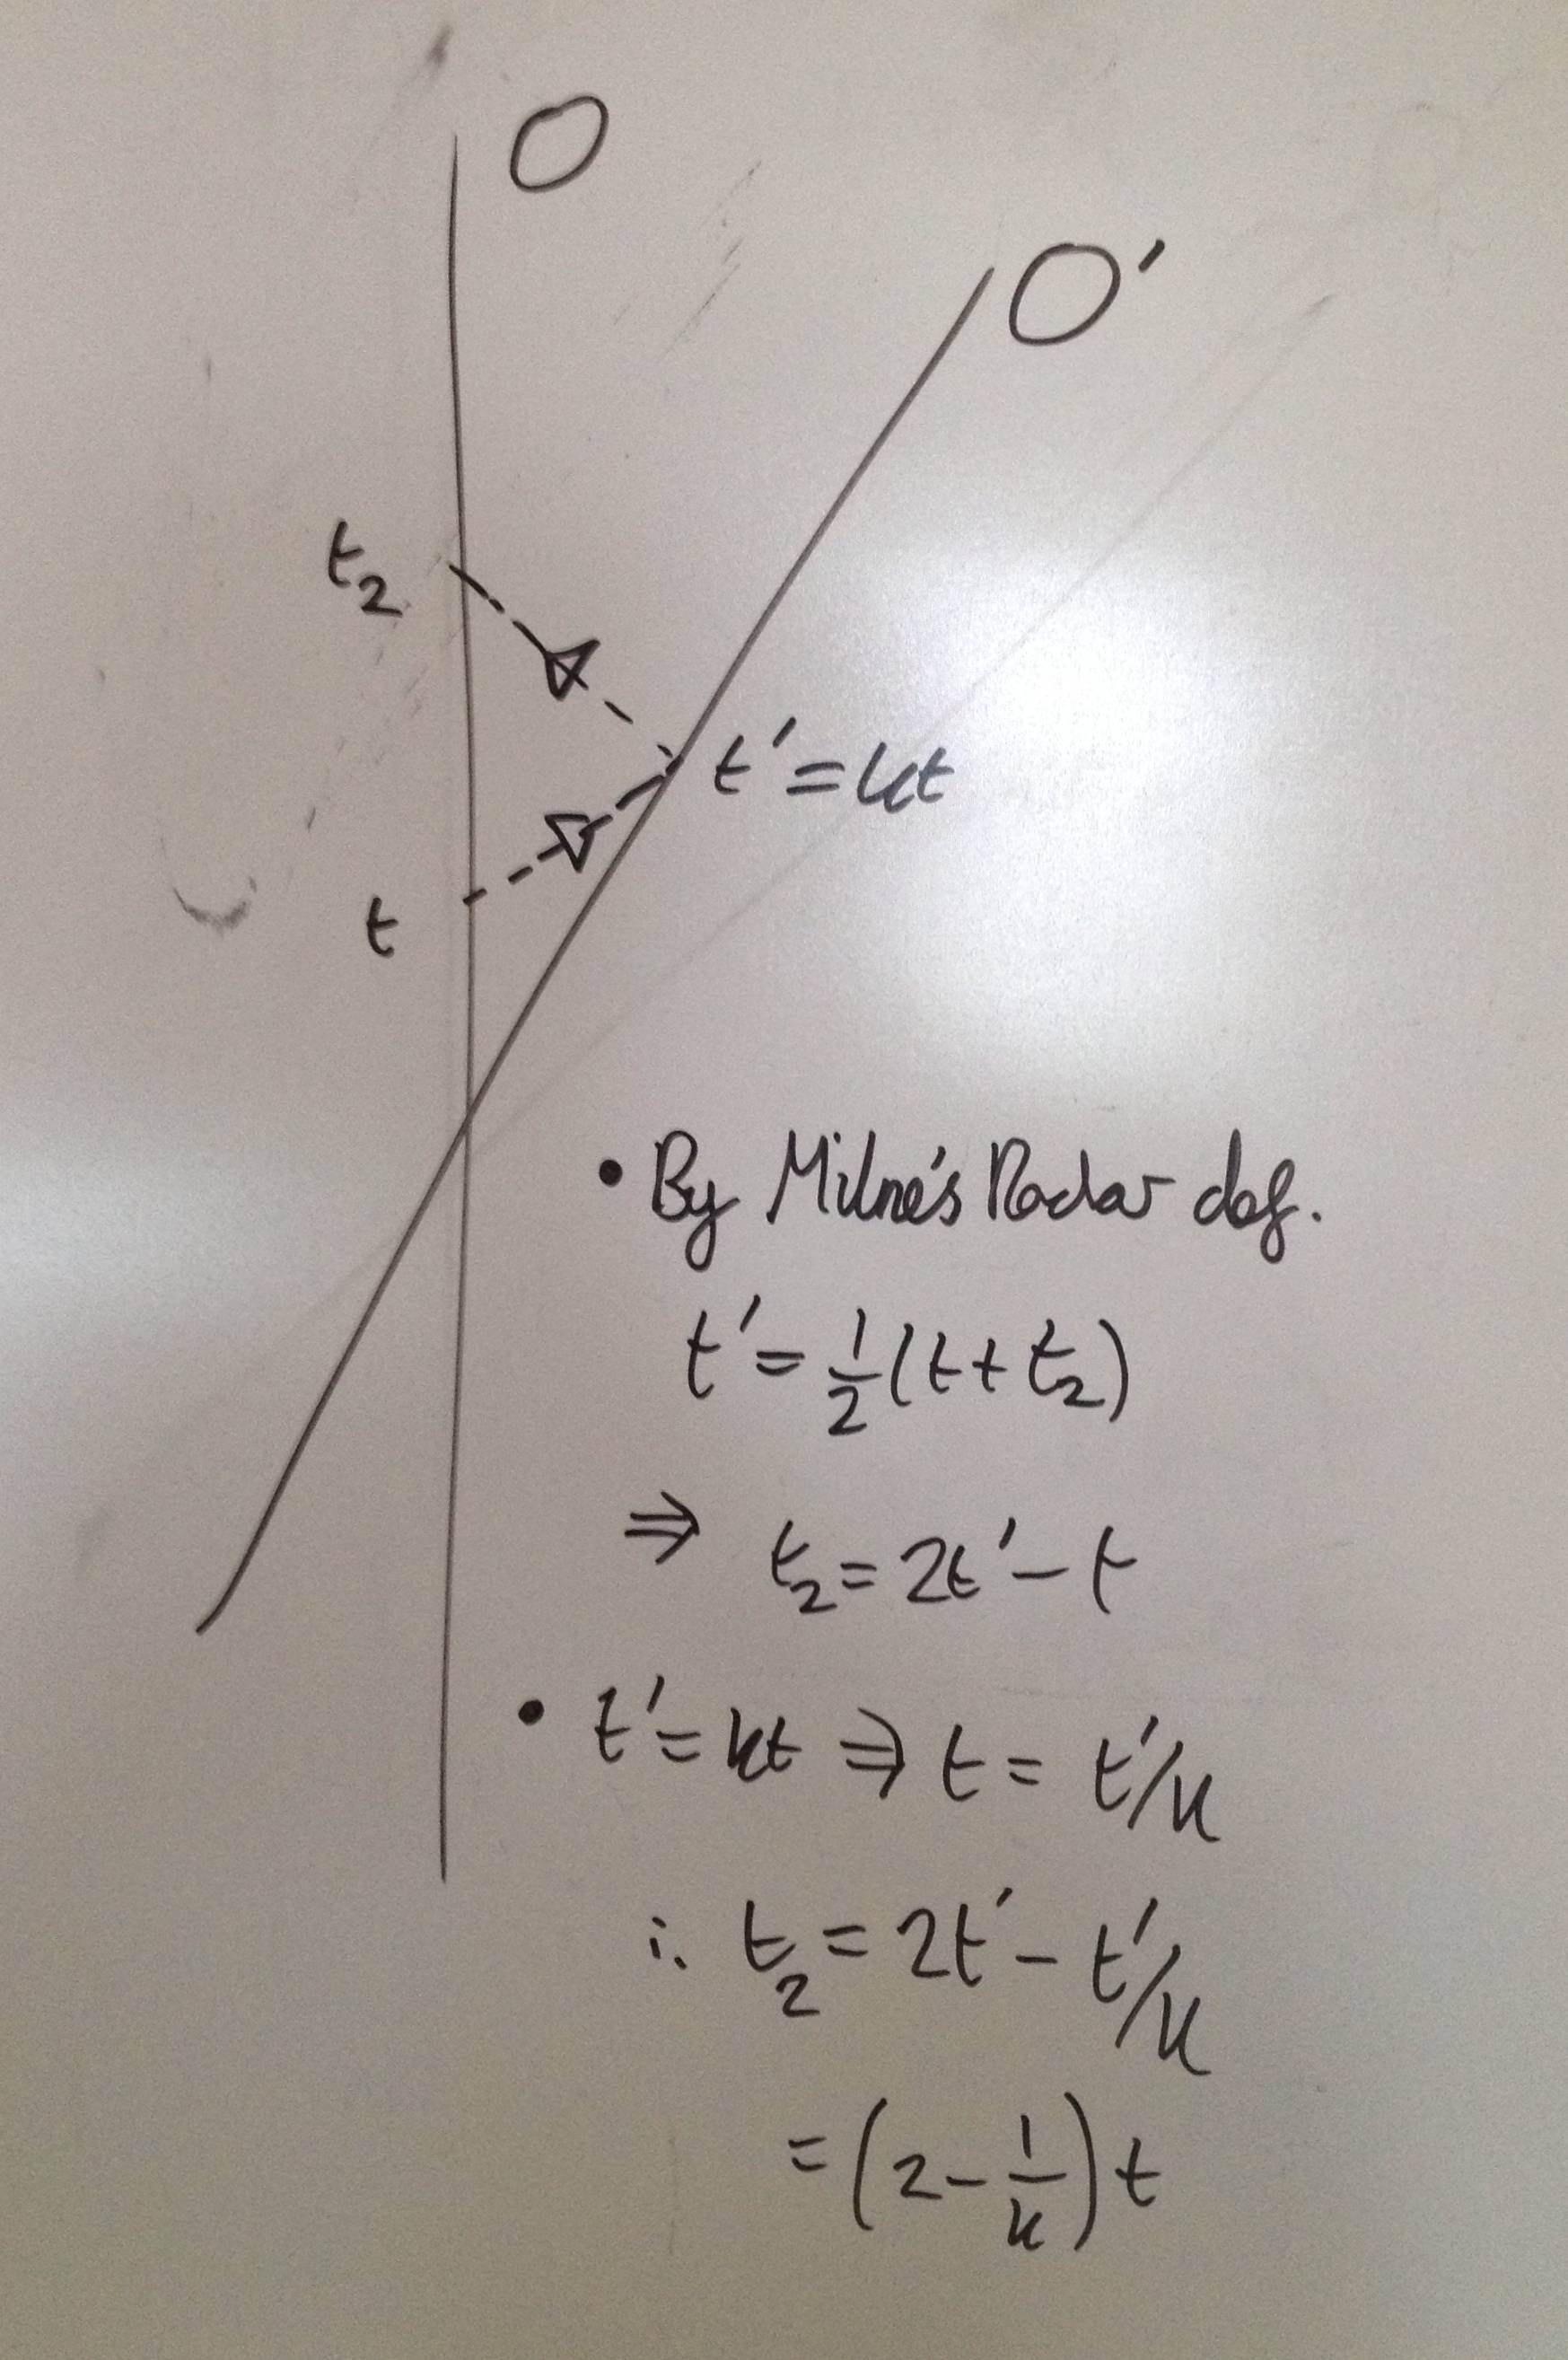 O
O'
t₂
t' = kt
t
• By Milne's Radar def.
t' = 1/2 (t + t₂)
⇒ t₂ = 2t' - t
• t' = kt ⇒ t = t'/k
∴ t₂ = 2t' - t'/k
= (2 - 1/k) t